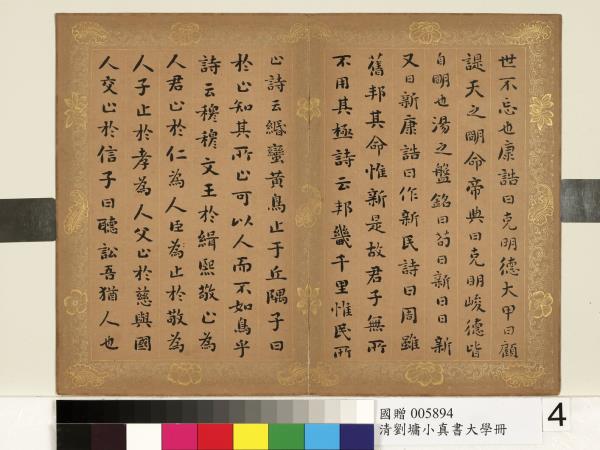 世不忘也康誥曰克明德大甲曰顧
諟天之明命帝典曰克明峻德皆
自明也湯之盤銘曰苟日新日日新
又日新康誥曰作新民詩曰周雖
舊邦其命惟新是故君子無所
不用其極詩云邦畿千里惟民所
止詩云緡蠻黃鳥止于丘隅子曰
於止知其所止可以人而不如鳥乎
詩云穆穆文王於緝熙敬止為
人君止於仁為人臣為止於敬為
人子止於孝為人父止於慈與國
人交止於信子曰聽訟吾猶人也
國贈 005894
清劉墉小真書大學冊
4